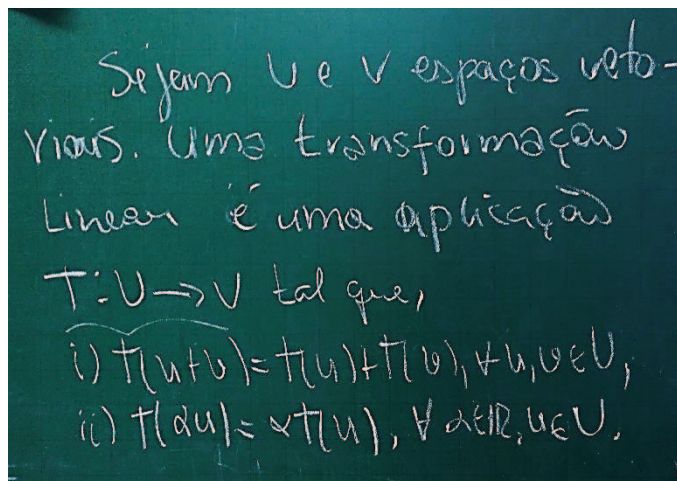 Sejam U e V espaços veto-
riais. Uma transformação
Linear é uma aplicação
T: U → V tal que,
i) T(u+v) = T(u)+T(v), ∀ u,v ∈ U,
ii) T(αu) = αT(u), ∀ α∈ℝ, u∈U.